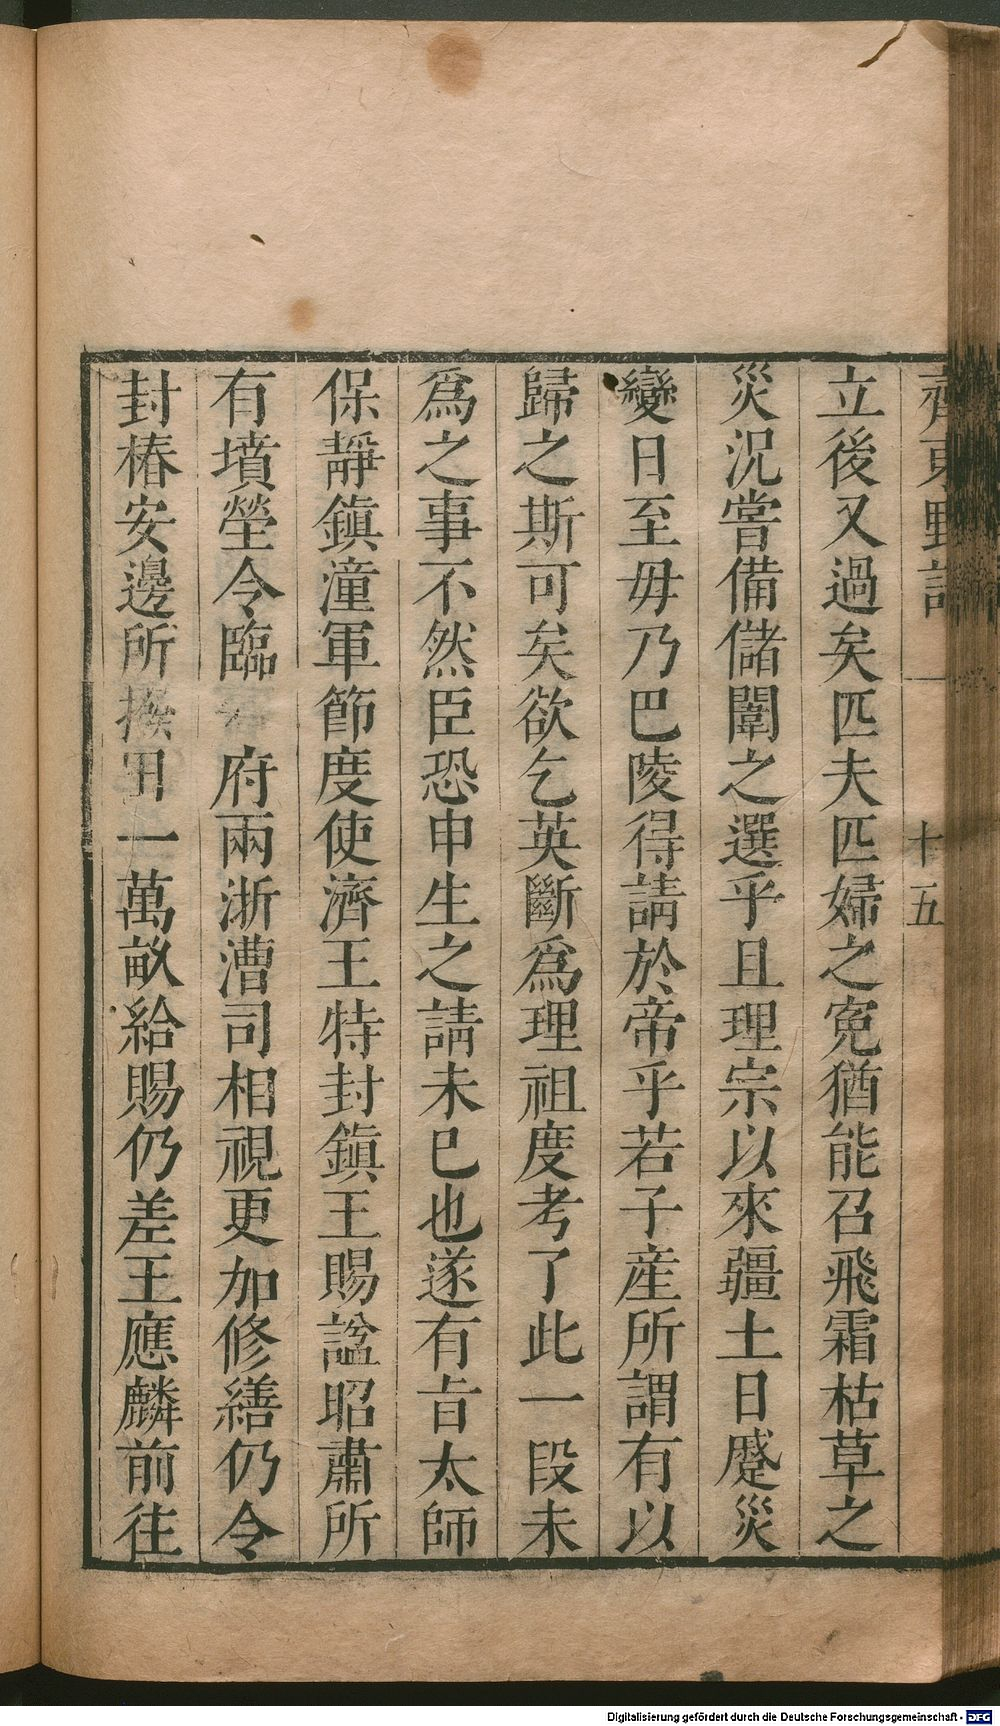 齊東野語
十五
立後又過矣匹夫匹婦之冤猶能召飛霜枯草之
災況嘗備儲闈之選乎且理宗以來疆土日蹙災
變日至毋乃巴陵得請於帝乎若子產所謂有以
歸之斯可矣欲乞英斷爲理祖度考了此一段未
爲之事不然臣恐申生之請未已也遂有旨太師
保靜鎮潼軍節度使濟王特封鎮王賜謚昭肅所
有墳塋令臨 府兩浙漕司相視更加修繕仍令
封樁安邊所撥田一萬畝給賜仍差王應麟前往
Digitalisierung gefördert durch die Deutsche Forschungsgemeinschaft - DFG